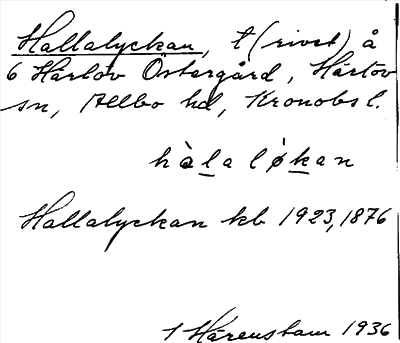 Hallalyckan, t(rivet) å
6 Härlöv Östergård, Härlöv
sn, Allbo hd, Kronobs l.
hàla lǿkan
Hallalyckan kb 1923, 1876
1 Härenstam 1936